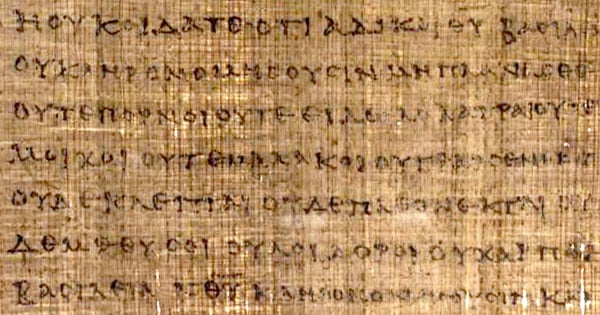 Η ΟΥΚ ΟΙΔΑΤΕ ΟΤΙ ΑΔΙΚΟΙ Θ̅Υ̅ ΒΑϹΙΛ
ΟΥ ΚΛΗΡΟΝΟΜΗϹΟΥϹΙΝ ΜΗ ΠΛΑΝΑϹΘΕ
ΟΥΤΕ ΠΟΡΝΟΙ ΟΥΤΕ ΕΙΔΩΛΟΛΑΤΡΑΙ ΟΥΤΕ
ΜΟΙΧΟΙ ΟΥΤΕ ΜΑΛΑΚΟΙ
ΟΥΔΕ ΚΛΕΠΤΑΙ ΟΥΔΕ ΠΛΕΟΝΕΚΤΑΙ ΟΥ
ΔΕ ΜΕΘΥϹΟΙ ΟΥ ΛΟΙΔΟΡΟΙ ΟΥΧ ΑΡΠΑ
ΒΑϹΙΛΕΙΑΝ Θ̅Υ̅ ΚΛΗΡΟΝΟΜΗϹΟΥϹΙΝ ΚΑ